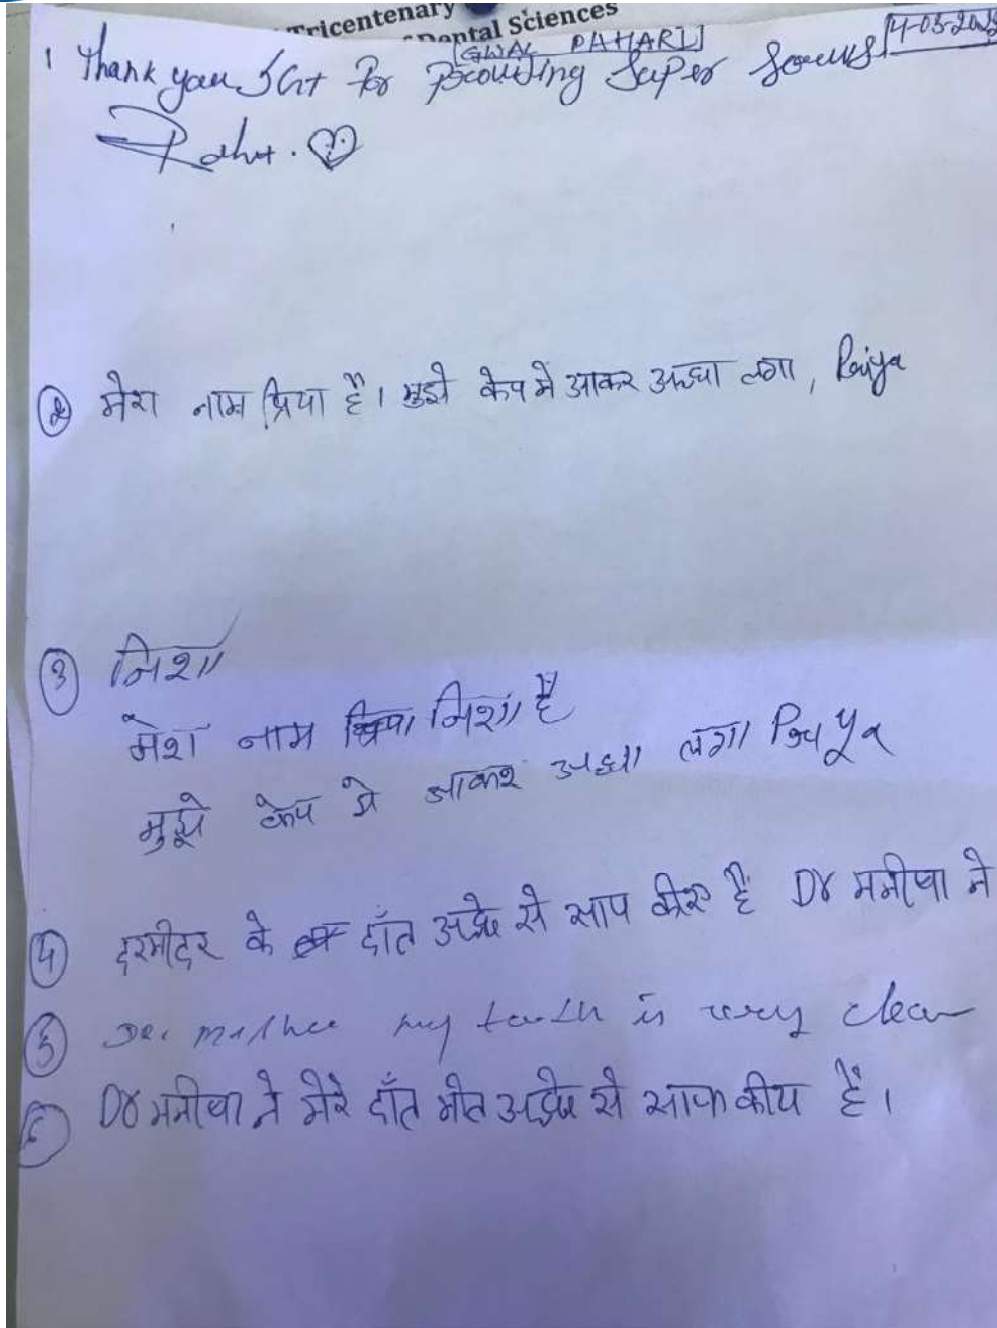 Tricentenary
Dental Sciences
[GWAL PAHARI]
14-03-2025
1 Thank you SGT for Providing Super
Rahul.
② मेरा नाम प्रिया है। मुझे केप मे आकर अच्छा लगा, Priya
③ निशा
मेरा नाम निशा है
मुझे केप मे आकर अच्छा लगा Priya
④ के दाँत अच्छे से साप कीए हैं Dr मनीषा ने
⑤ my teeth is very clean
⑥ Dr मनीषा ने मेरे दाँत भोत अच्छे से साफ कीय हैं।